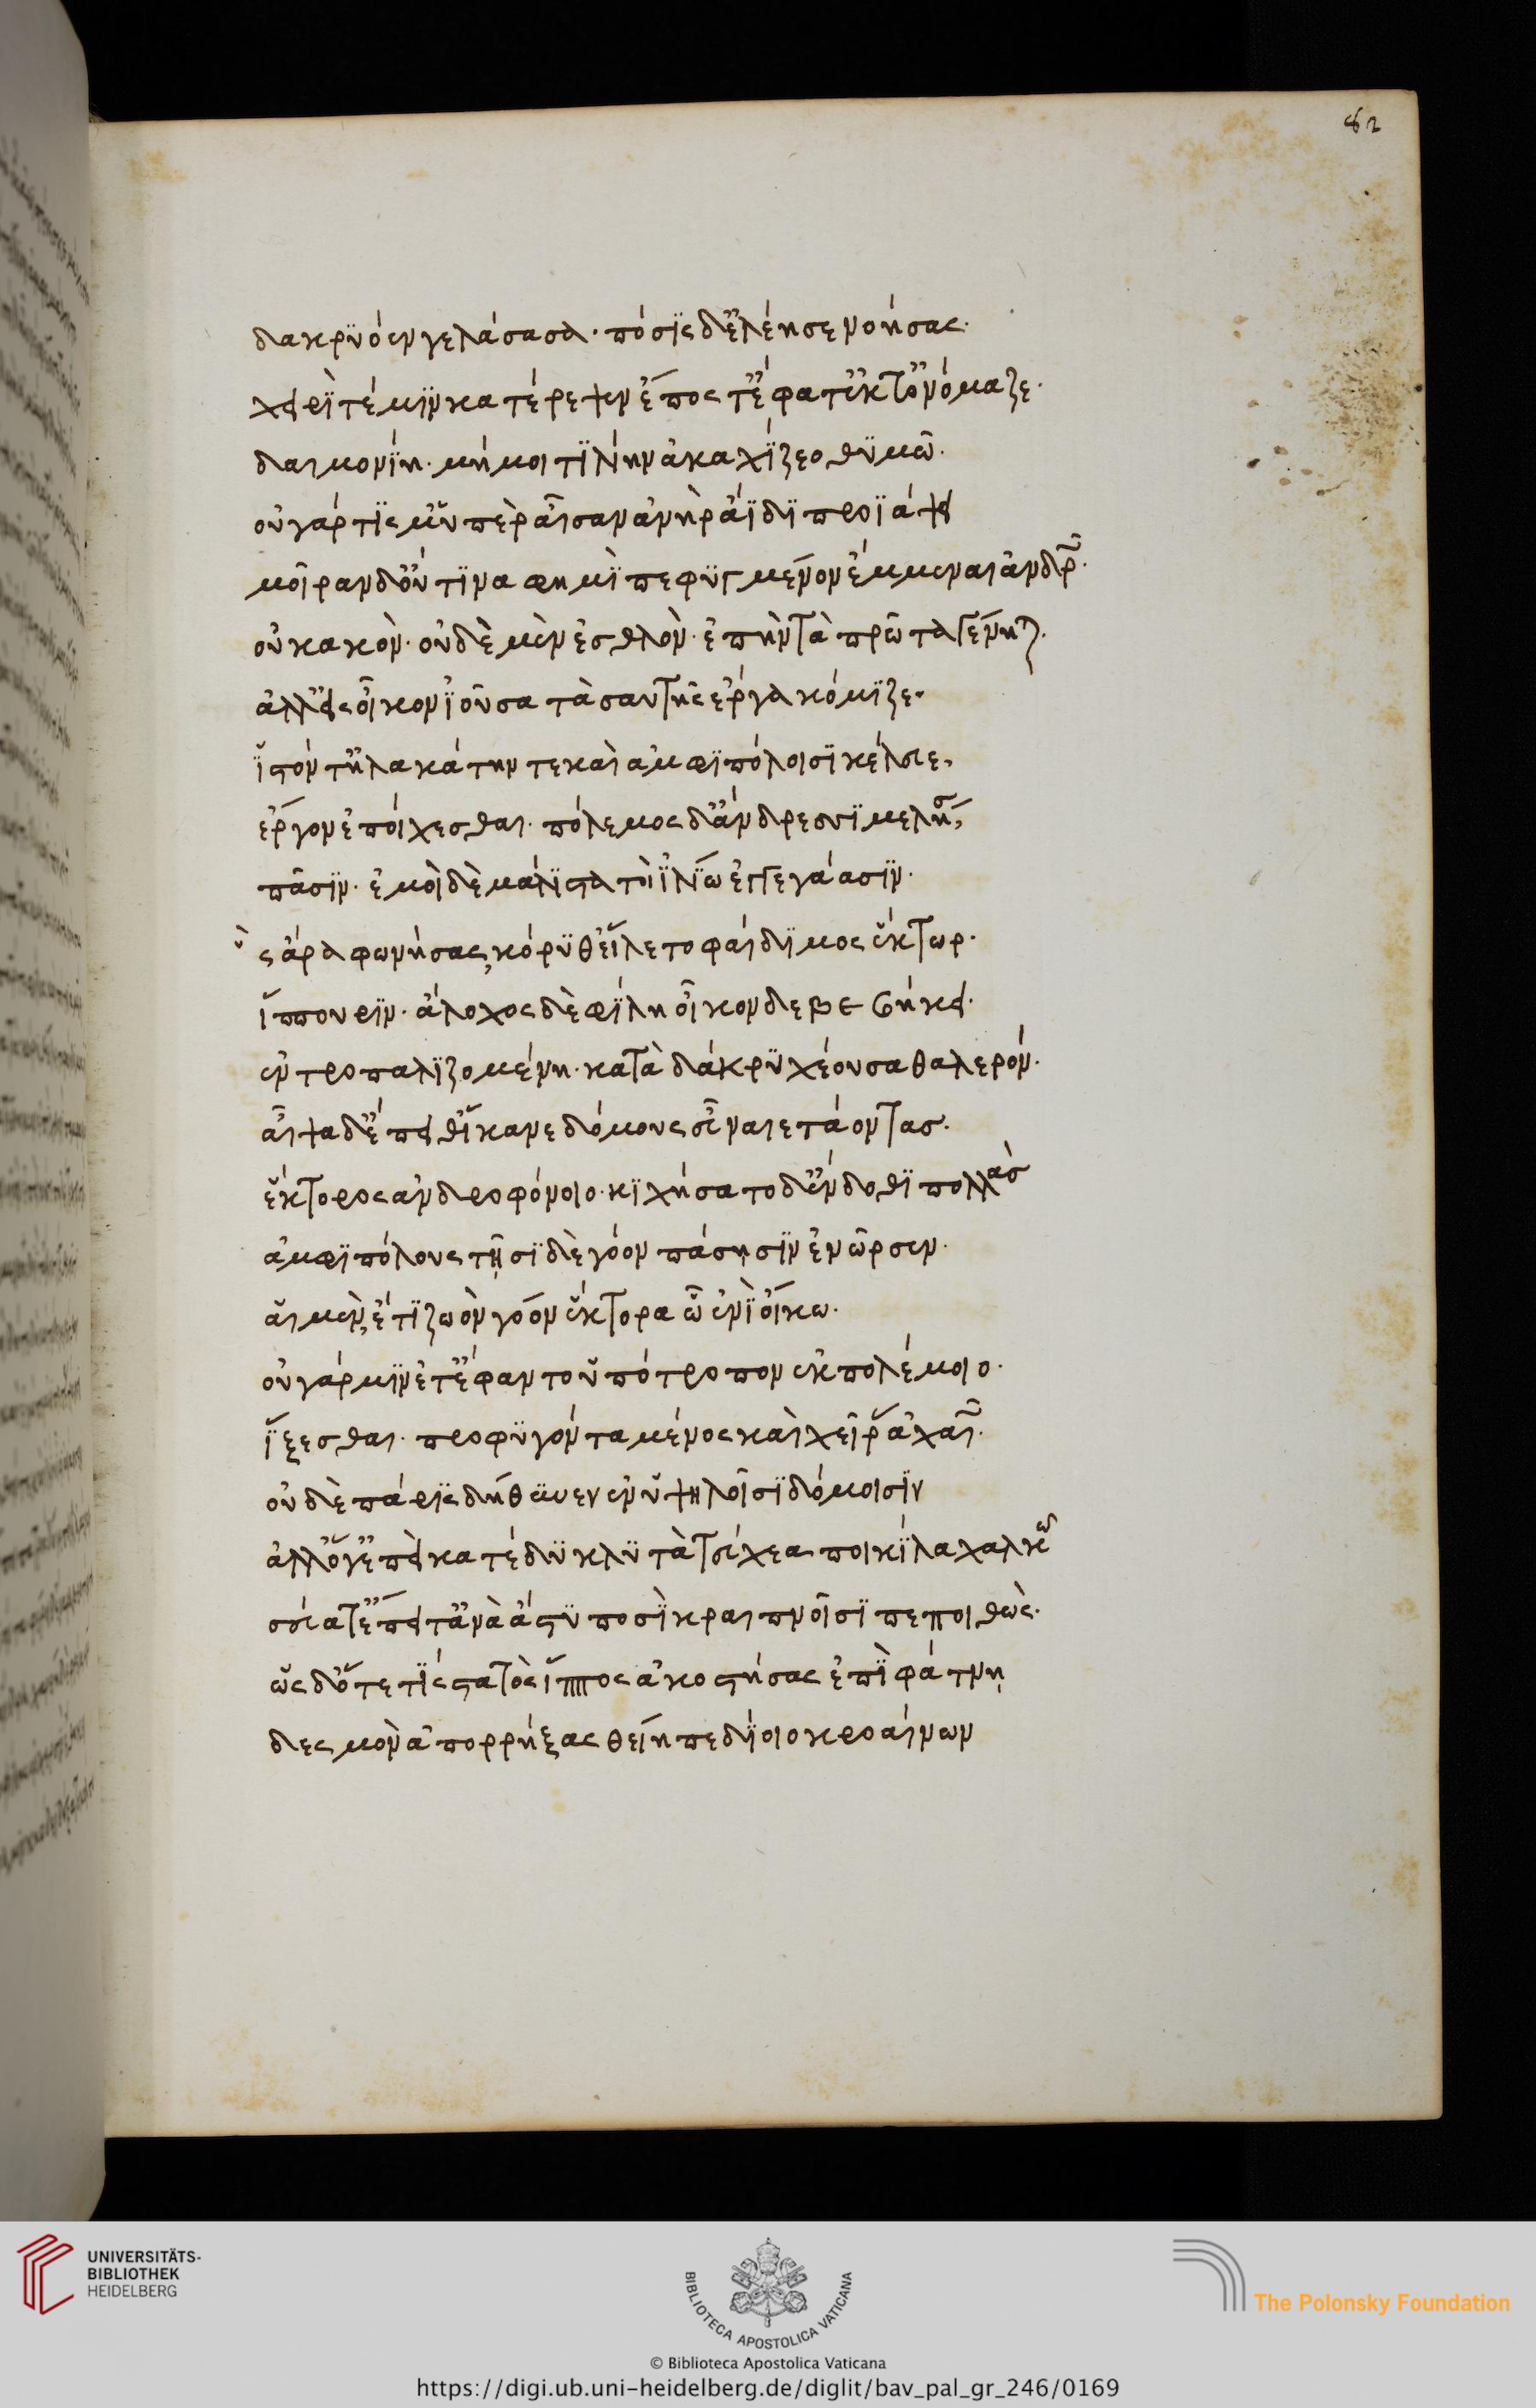 82
δακρϋόεν γελάσασα· πόσϊς δ' ἐλέησε νοήσας·
χειρί τέ μϊν κατέρεξεν ἔπος τ' ἔφατ' ἔκ τ' ὀνόμαζε·
δαιμονΐη· μή μοι τϊ λΐην ἀκαχΐζεο θϋμῶ·
οὐ γάρ τΐς μ' ὑπὲρ αἶσαν ἀνὴρ ἄϊδϊ προϊάψει
μοῖραν δ' οὔ τϊνα φημῒ πεφϋγμένον ἔμμεναι ἀνδρῶν·
οὐ κακὸν· οὐδὲ μὲν ἐσθλὸν· ἐπὴν τὰ πρῶτα γένηται·
ἀλλ' εἰς οἶκον ἰοῦσα τὰ σαυτῆς ἔργα κόμϊζε·
ἵστόν τ' ἠλακάτην τε καὶ ἀμφϊπόλοισϊ κέλευε,
ἔργον ἐποίχεσθαι· πόλεμος δ' ἄνδρεσσϊ μελήσει,
πᾶσϊν· ἐμοὶ δὲ μάλϊστα τοὶ ϊλΐω ἐγγεγάασϊν·
ὣς ἄρα φωνήσας, κόρϋθ' εἵλετο φαίδϊμος ἕκτωρ·
ἵππουριν· ἄλοχος δὲ φΐλη οἶκον δε βεβήκει·
ἐντροπαλϊζομένη· κατὰ δάκρϋ χέουσα θαλερόν·
αἶψα δ' ἔπειθ' ἵκανε δόμους εὖ ναιετάοντας·
ἕκτορος ἀνδροφόνοιο· κϊχήσατο δ' ἔνδοθϊ πολλὰς
ἀμφϊπόλους τῆσϊ δὲ γόον πάσησϊν ἐνῶρσεν·
αἵ μὲν, ἔτϊ ζωὸν γόον ἕκτορα ὧ ἐνὶ οἴκω·
οὐ γάρ μϊν ἔτ' ἔφαντο ὑπότροπον ἐκ πολέμοιο·
ἵξεσθαι· προφϋγόντα μένος καὶ χεῖρας ἀχαιῶν·
οὐδὲ πάρϊς δήθϋνεν ἐν ὑψηλοῖσϊ δόμοισϊν
ἀλλ' ὅγ' ἐπεὶ κατέδϋ κλϋτὰ τεύχεα ποικΐλα χαλκῶ
σεύατ' ἔπειτ' ἀνὰ ἄστϋ ποσῒ κραιπνοῖσϊ πεποιθὼς·
ὡς δ' ὅτε τΐς στατὸς ἵππος ἀκοστήσας ἐπῒ φάτνη
δεσμὸν ἀπορρήξας θείη πεδΐοιο κροαίνων
UNIVERSITÄTS-
BIBLIOTHEK
HEIDELBERG
BIBLIOTECA APOSTOLICA VATICANA
The Polonsky Foundation
© Biblioteca Apostolica Vaticana
https://digi.ub.uni-heidelberg.de/diglit/bav_pal_gr_246/0169